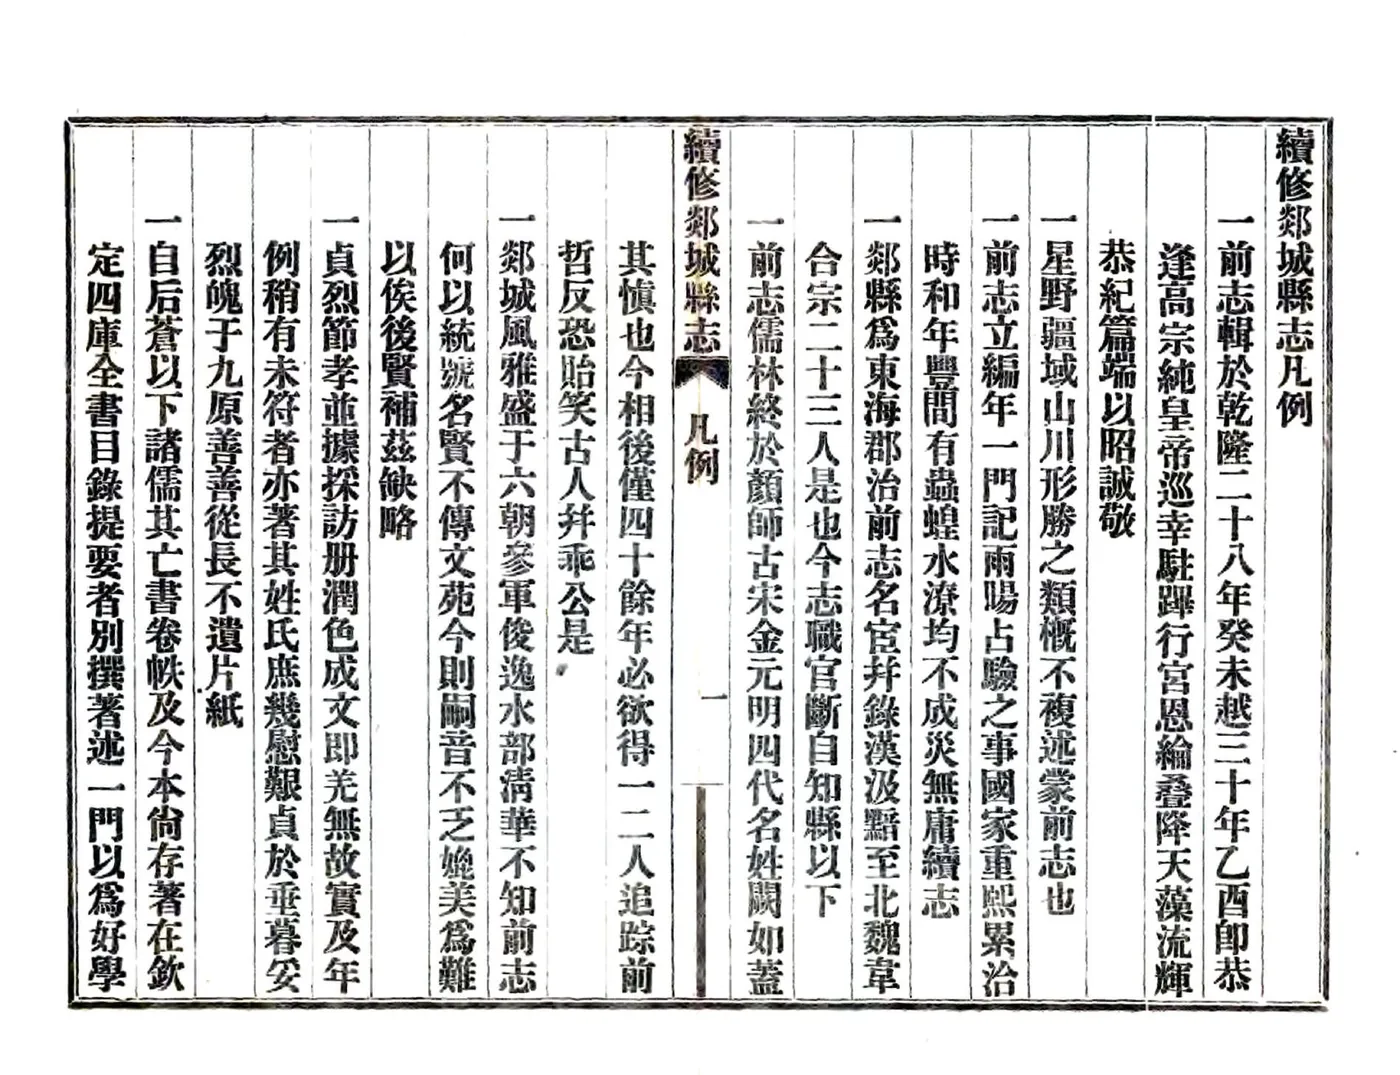 續修郯城縣志凡例
一前志輯於乾隆二十八年癸未越三十年乙酉卽恭
逢高宗純皇帝巡幸駐蹕行宮恩綸叠降天藻流輝
恭紀篇端以昭誠敬
一星野疆域山川形勝之類概不複述蒙前志也
一前志立編年一門記雨暘占驗之事國家重熙累洽
時和年豐間有蟲蝗水潦均不成災無庸續志
一郯縣爲東海郡治前志名宦幷錄漢汲黯至北魏韋
合宗二十三人是也今志職官斷自知縣以下
一前志儒林終於顏師古宋金元明四代名姓闕如蓋
續修郯城縣志
凡例
一
其慎也今相後僅四十餘年必欲得一二人追踪前
哲反恐貽笑古人幷乖公是
一郯城風雅盛于六朝參軍俊逸水部淸華不知前志
何以統號名賢不傳文苑今則嗣音不乏媲美爲難
以俟後賢補茲缺略
一貞烈節孝並據採訪册潤色成文即羌無故實及年
例稍有未符者亦著其姓氏庶幾慰艱貞於垂暮妥
烈魄于九原善善從長不遺片紙
一自后蒼以下諸儒其亡書卷帙及今本尙存著在欽
定四庫全書目錄提要者別撰著述一門以爲好學